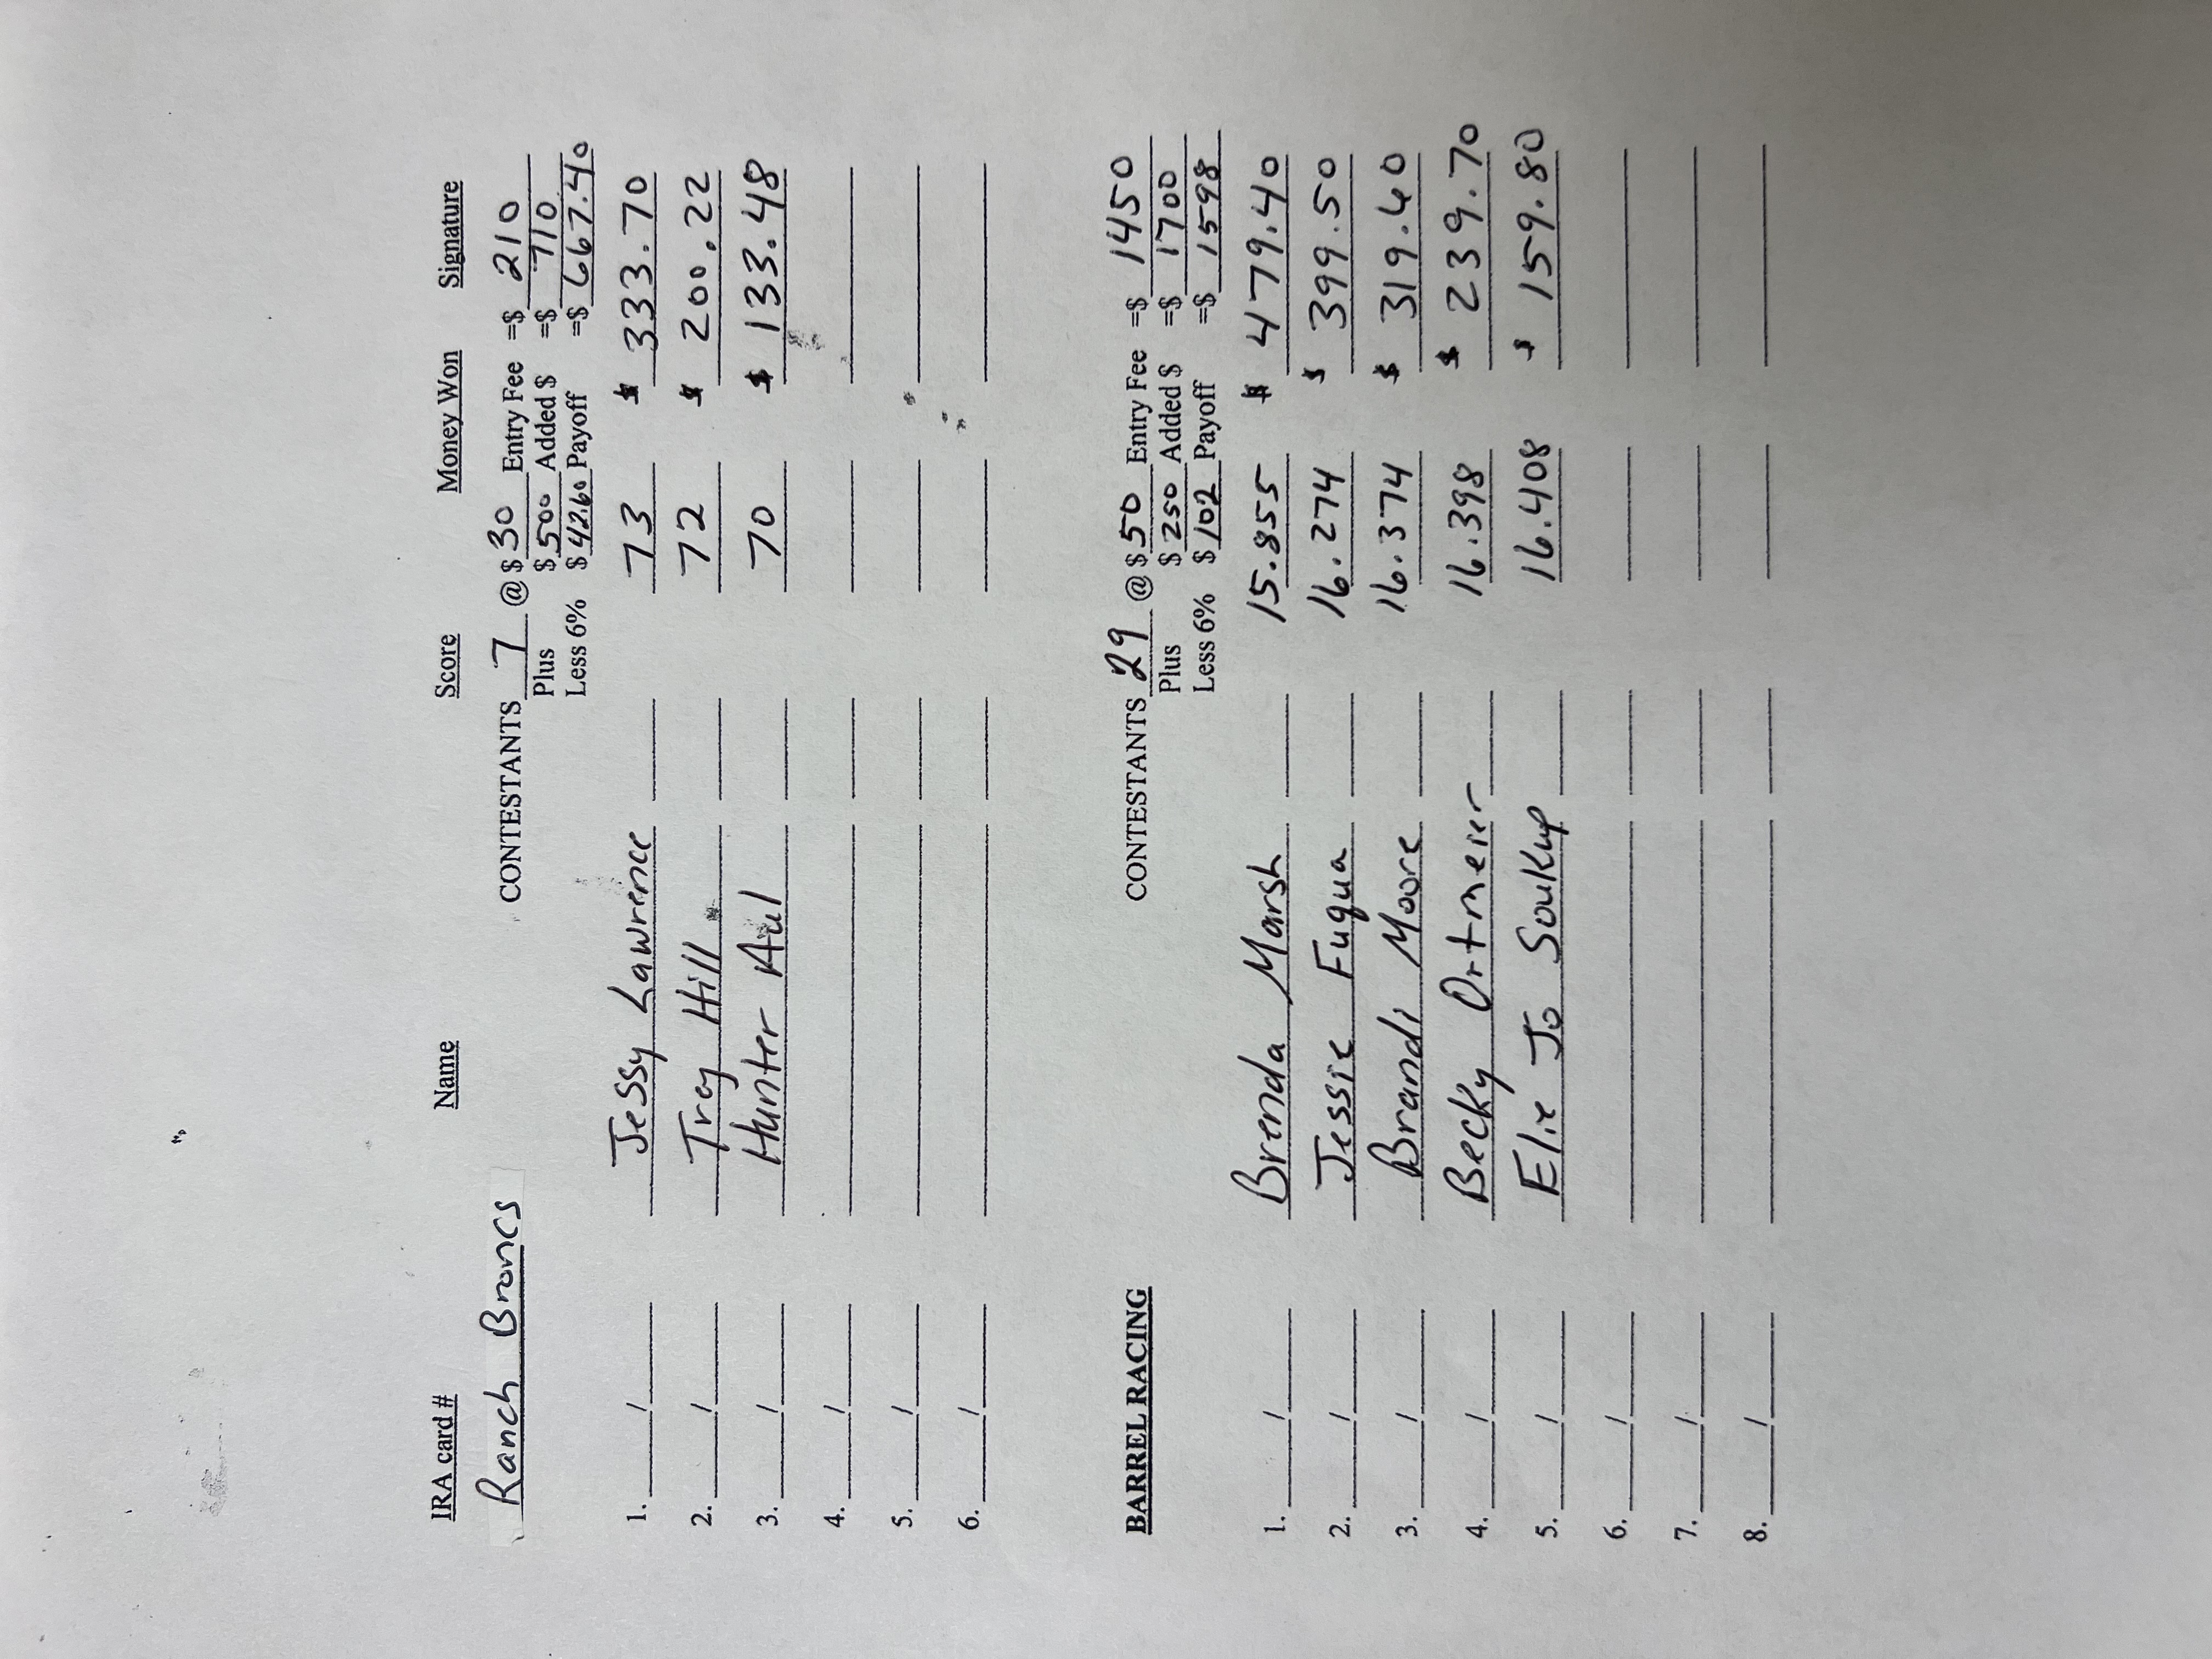 IRA card # Name Score Money Won Signature
Ranch Broncs CONTESTANTS 7 @ $ 30 Entry Fee =$ 210
Plus $ 500 Added $ =$ 710
Less 6% $ 42.60 Payoff =$ 667.40
1. / Jessy Lawrence 73 $ 333.70
2. / Trey Hill 72 $ 200.22
3. / Hunter Aul 70 $ 133.48
4. /
5. /
6. /
BARREL RACING CONTESTANTS 29 @ $ 50 Entry Fee =$ 1450
Plus $ 250 Added $ =$ 1700
Less 6% $ 102 Payoff =$ 1598
1. / Brenda Marsh 15.855 $ 479.40
2. / Jessie Fuqua 16.274 $ 399.50
3. / Brandi Moore 16.374 $ 319.60
4. / Becky Ortmeier 16.398 $ 239.70
5. / Elie Jo Soukup 16.408 $ 159.80
6. /
7. /
8. /